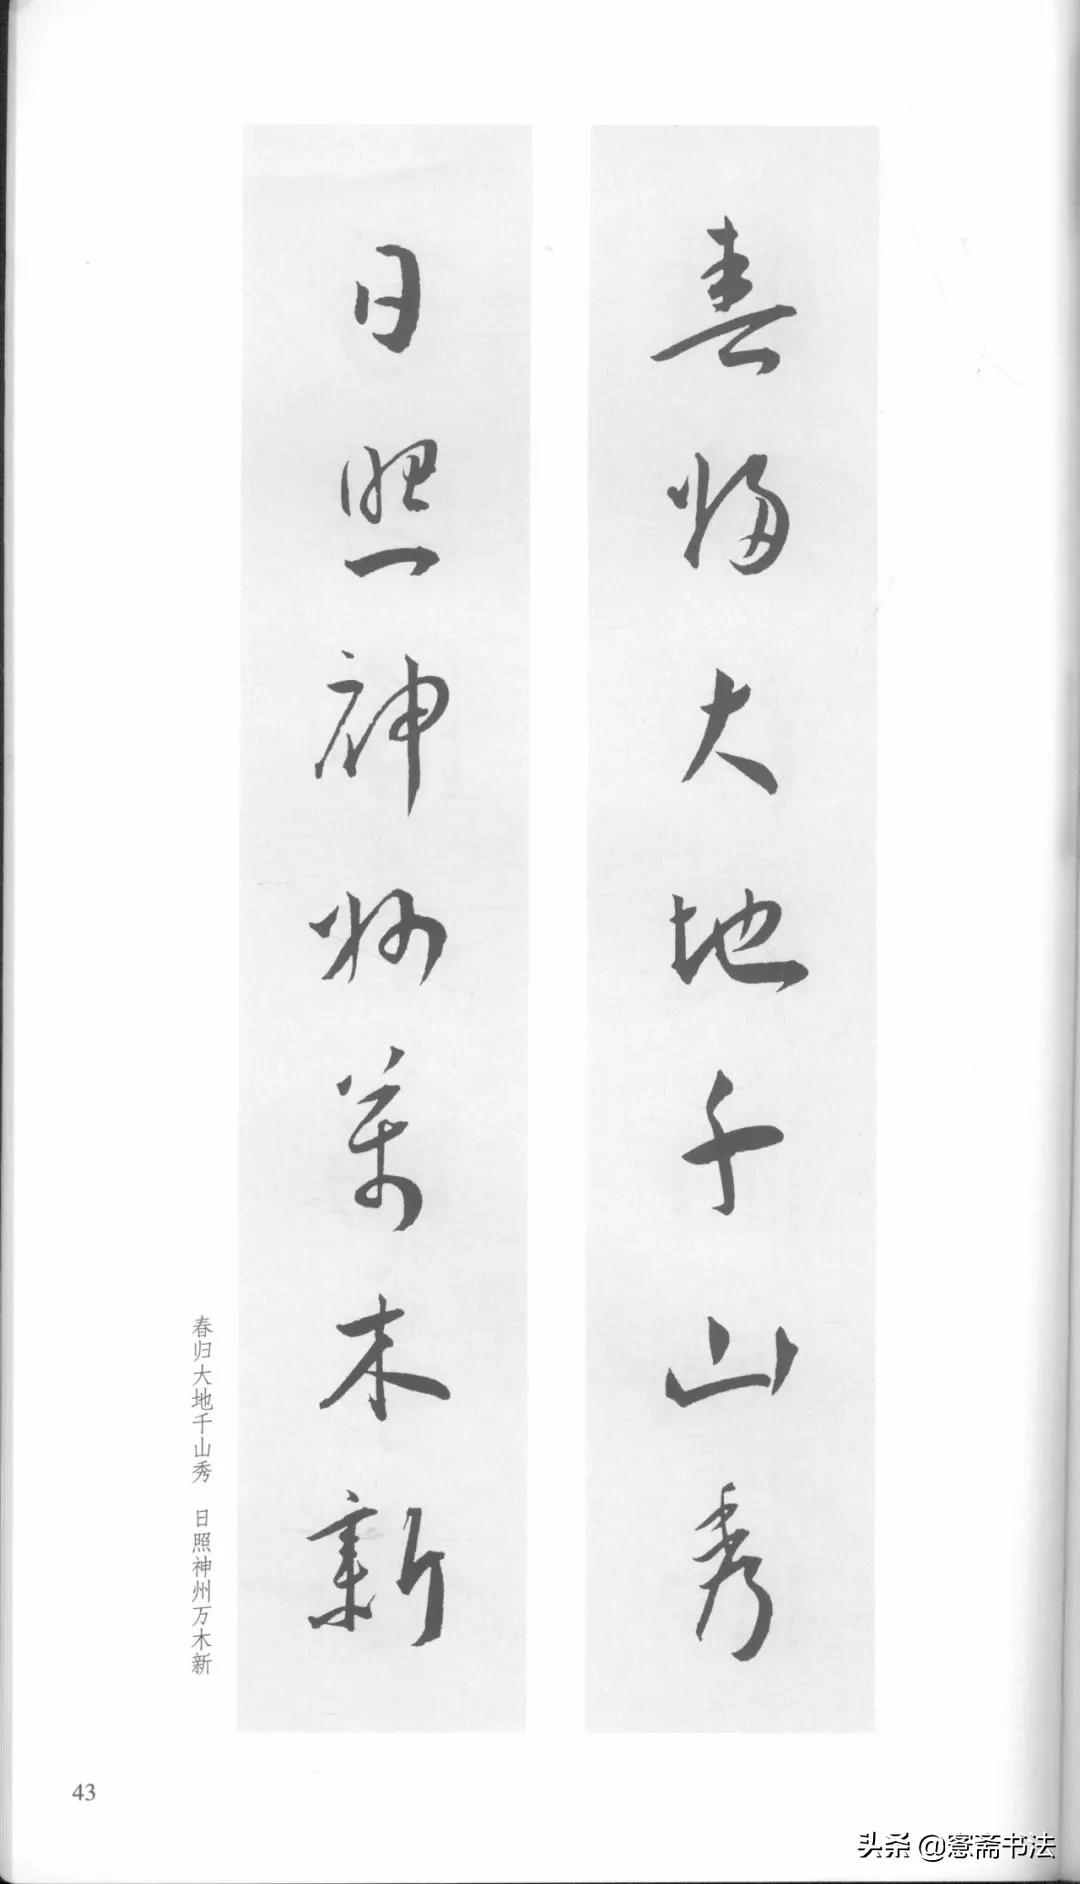 春歸大地千山秀
日照神州萬木新
春归大地千山秀 日照神州万木新
43
头条 @寋斋书法